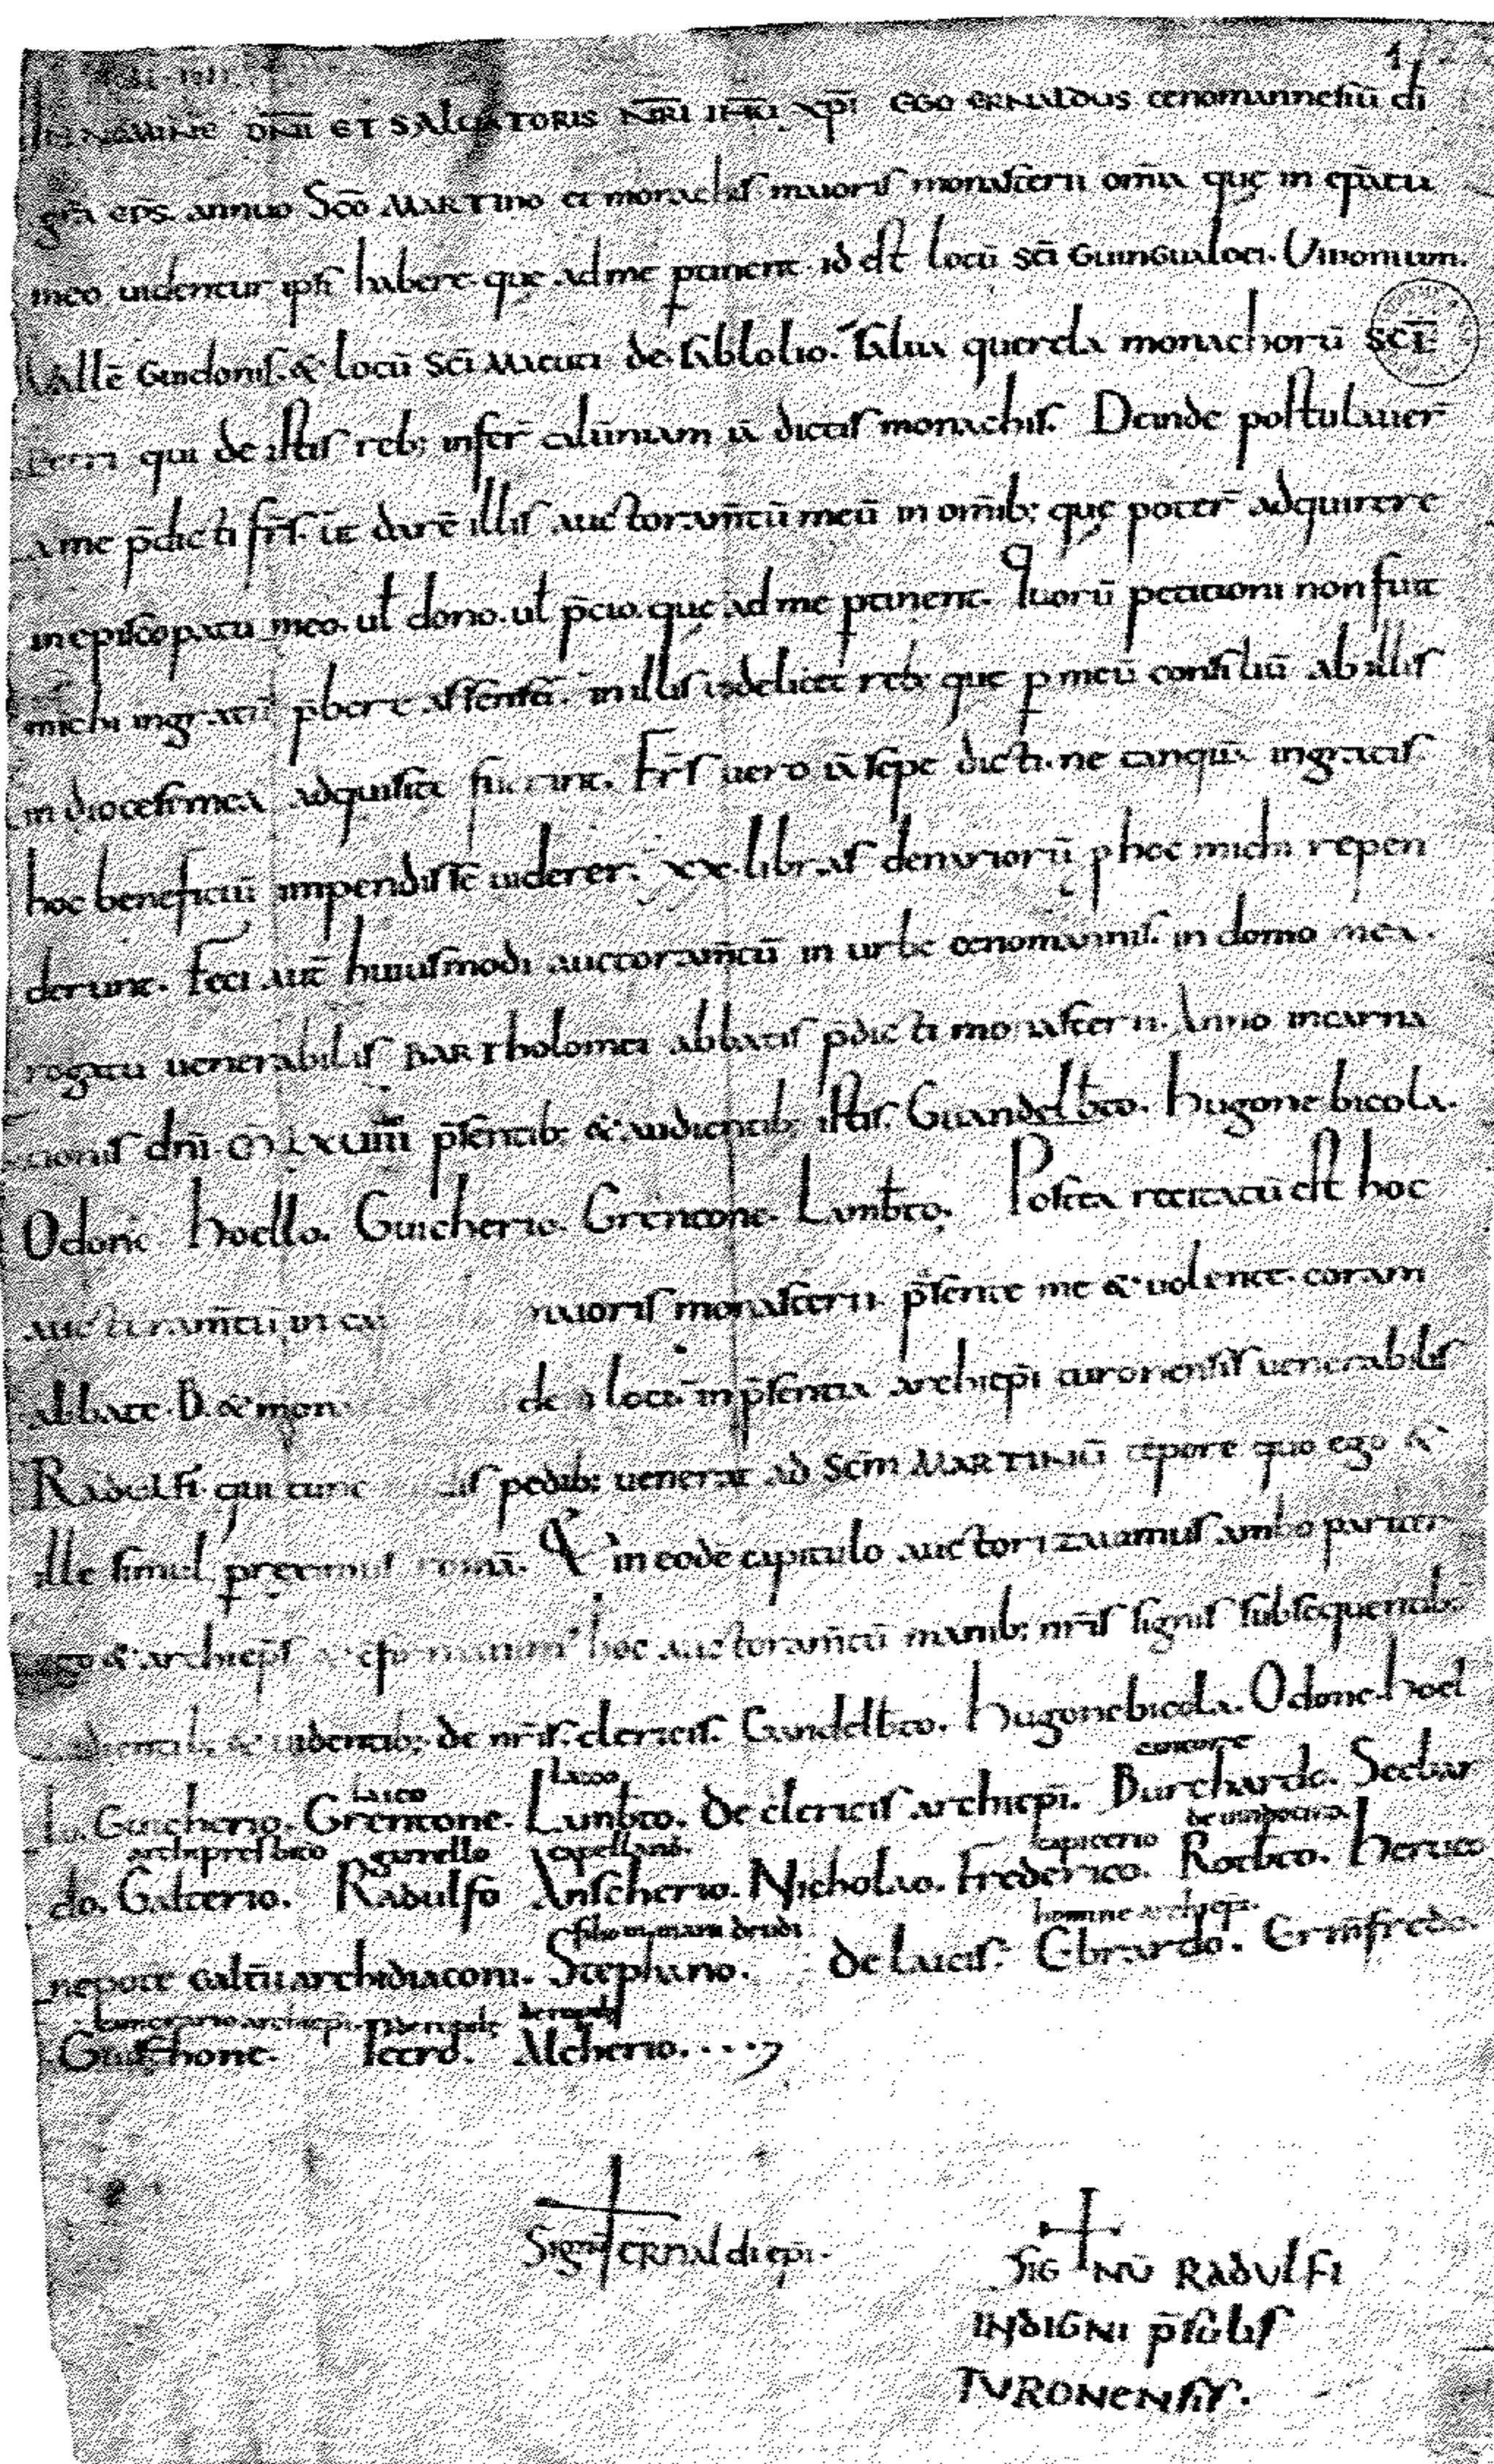 IN NOMINE DN̄I ET SALVATORIS NR̄I IH̄U XP̄I EGO ERNALDUS cenomannensiū dī
gr̄a ep̄s. annuo Sc̄o MARTINO et monachis maioris monasterii om̄ia quę in ep̄atu
meo uidentur ipsi habere que ad me ptinent. id est locū sc̄i Guingualoei. Viuonium.
Vallē Guidonis. & locū Sc̄i Macuti de sablolio. salua querela monachorū SC̄I
petri qui de istis reb; infer̄t calūniam iā dictis monachis. Deinde postulauer̄
a me p̄dicti fr̄s. ut darē illis auctoram̄tū meū in om̄ib; quę poter̄ adquirere
in ep̄iscopatu meo. ul̄ dono. ul̄ p̄cio. quę ad me ptinent. Quorū petitioni non fuit
michi ingratū p̄bere assensū. in illis uidelicet reb; que p meū consiliū ab illis
in diocesi mea adquisita fuerint. Fr̄s uero iā sepe dicti. ne tanquā ingratis
hoc beneficiū impendisse uiderer. xx. libras denariorū p hoc michi repen
derunt. Feci aut̄ huiusmodi auctoram̄tū in urbe cenomannis. in domo mea.
rogatu uenerabilis BARTholomei abbatis p̄dicti monasterii. Anno incarna
tionis dn̄i. M̄ LXVIIII p̄sentib; & audientib; istis. Guandelb̄to. hugone bicola.
Odone hoello. Guicherio. Grentone. Lamb̄to. Postea recitatū est hoc
auctoram̄tū in ca maioris monasterii. p̄sente me & uolente. coram
abbate. B. & mon de loco. in p̄sentia archiep̄i turonensis uenerabilis
Radulfi. qui tunc is pedib; uenerat ad Sc̄m MARTINŪ tēpore quo ego &
ille simul pgeremus romā. Et in eodē capitulo auctorizauimus ambo pariter
ego & archiep̄s & cfirmauim' hoc auctoram̄tū manib; nr̄is signis subsequentib;
audientib; & uidentib; de nr̄is clericis. Gundelb̄to. hugone bicola. Odone hoel
lo. Guicherio. Grentone. Lamb̄to. De clericis archiep̄i. Burchardo. Seebar
laico laico cantore
do. Galterio. Radulfo Anscherio. Nicholao. Frederico. Rotb̄to. herueo
archipresb̄ito gurello capellano. capicerio de uindocino.
nepote galt̄ii archidiaconi. Stephano. De laicis. Ebrardo. Erm̄fredo.
filio mainardi homine archiep̄i.
Guischone. Tetro. Alcherio.
camerario archiep̄i.
Signū ERNaldi ep̄i.
SIGNŪ RADULFI
INDIGNI p̄sulis
TURONENSIS.